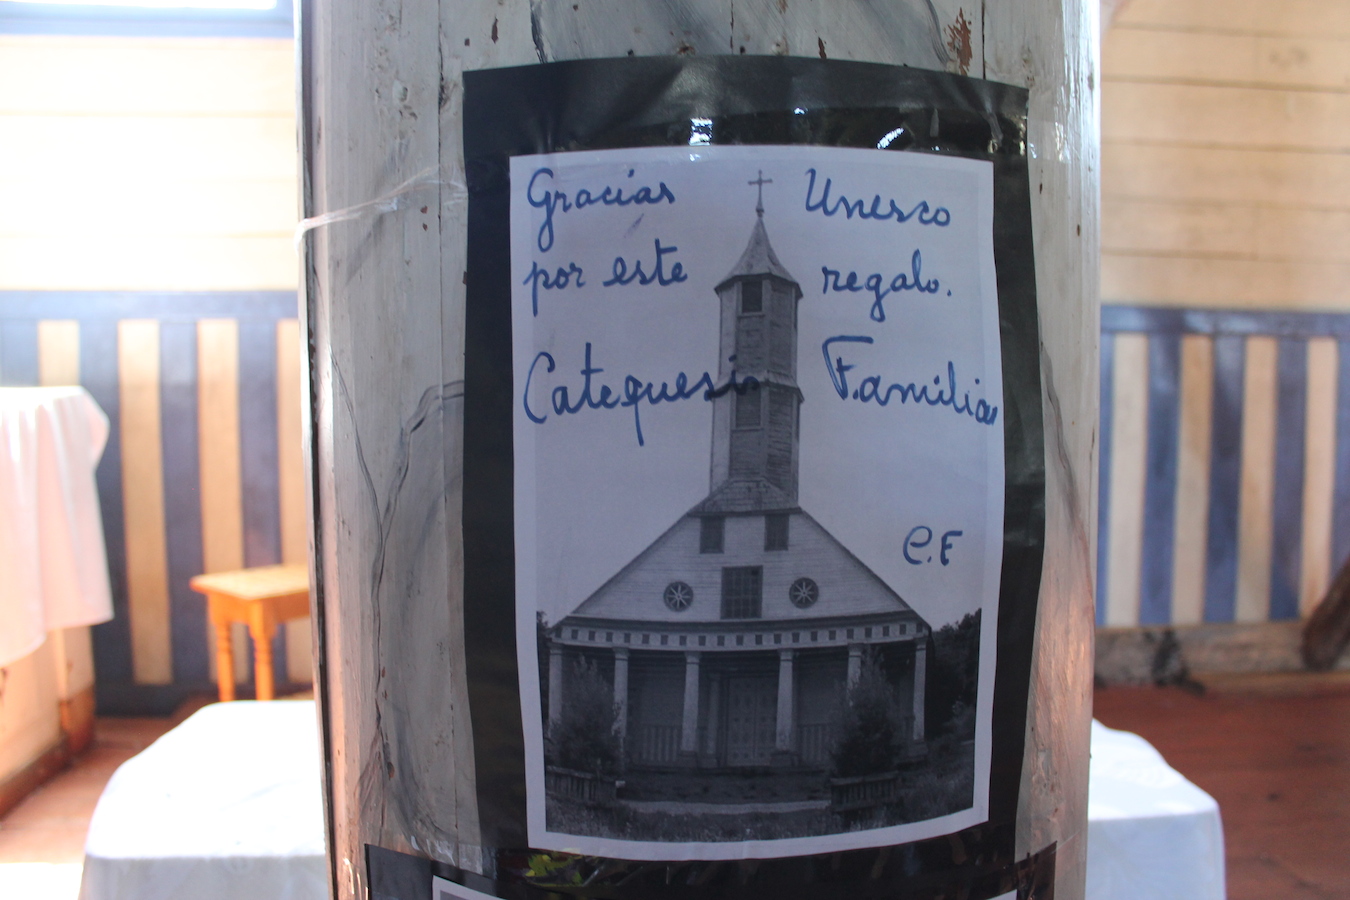 Gracias Unesco
por este regalo.
Catequesis Familiar
C.F